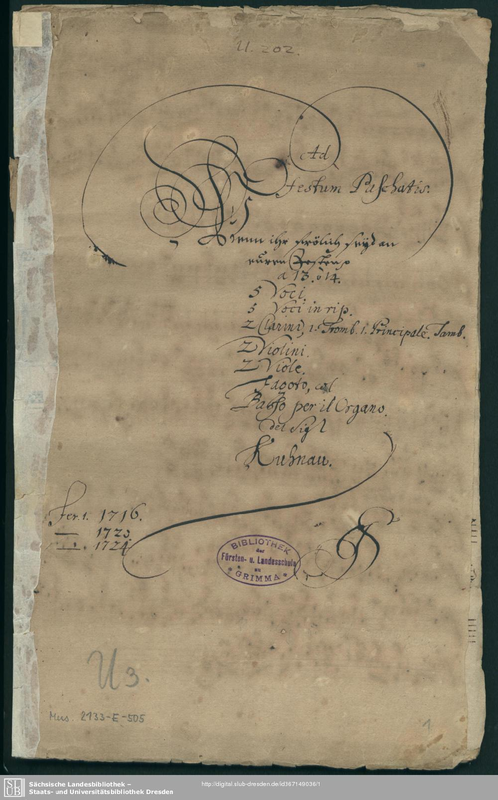 U. 202.
Ad
Festum Paschatis.
Wenn ihr frölich seÿd an
euren Festen
a 13. ò 14.
5 Voci.
5 Voci in rip.
2 Clarini, 1. Tromb. 1. Principale. Tamb.
2 Violini.
2 Viole.
Fagoto, col
Basso per il Organo.
del Sig
Kuhnau.
fer. 1. 1716.
— 1723.
— 1724.
BIBLIOTHEK
der
Fürsten- u. Landesschule
zu
GRIMMA
U 3.
Mus. 2133-E-505
1
SLUB
Sächsische Landesbibliothek –
Staats- und Universitätsbibliothek Dresden
http://digital.slub-dresden.de/id367149036/1